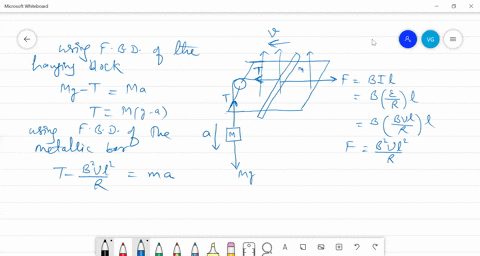 Microsoft Whiteboard
VG
using F.B.D. of the
hanging block
Mg - T = Ma
T = M(g-a)
using F.B.D. of the
metallic bar
T - B²vl²/R = ma
v
T
T
a
M
Mg
F = BIl
= B(ε/R)l
= B(Bvl/R)l
F = B²vl²/R